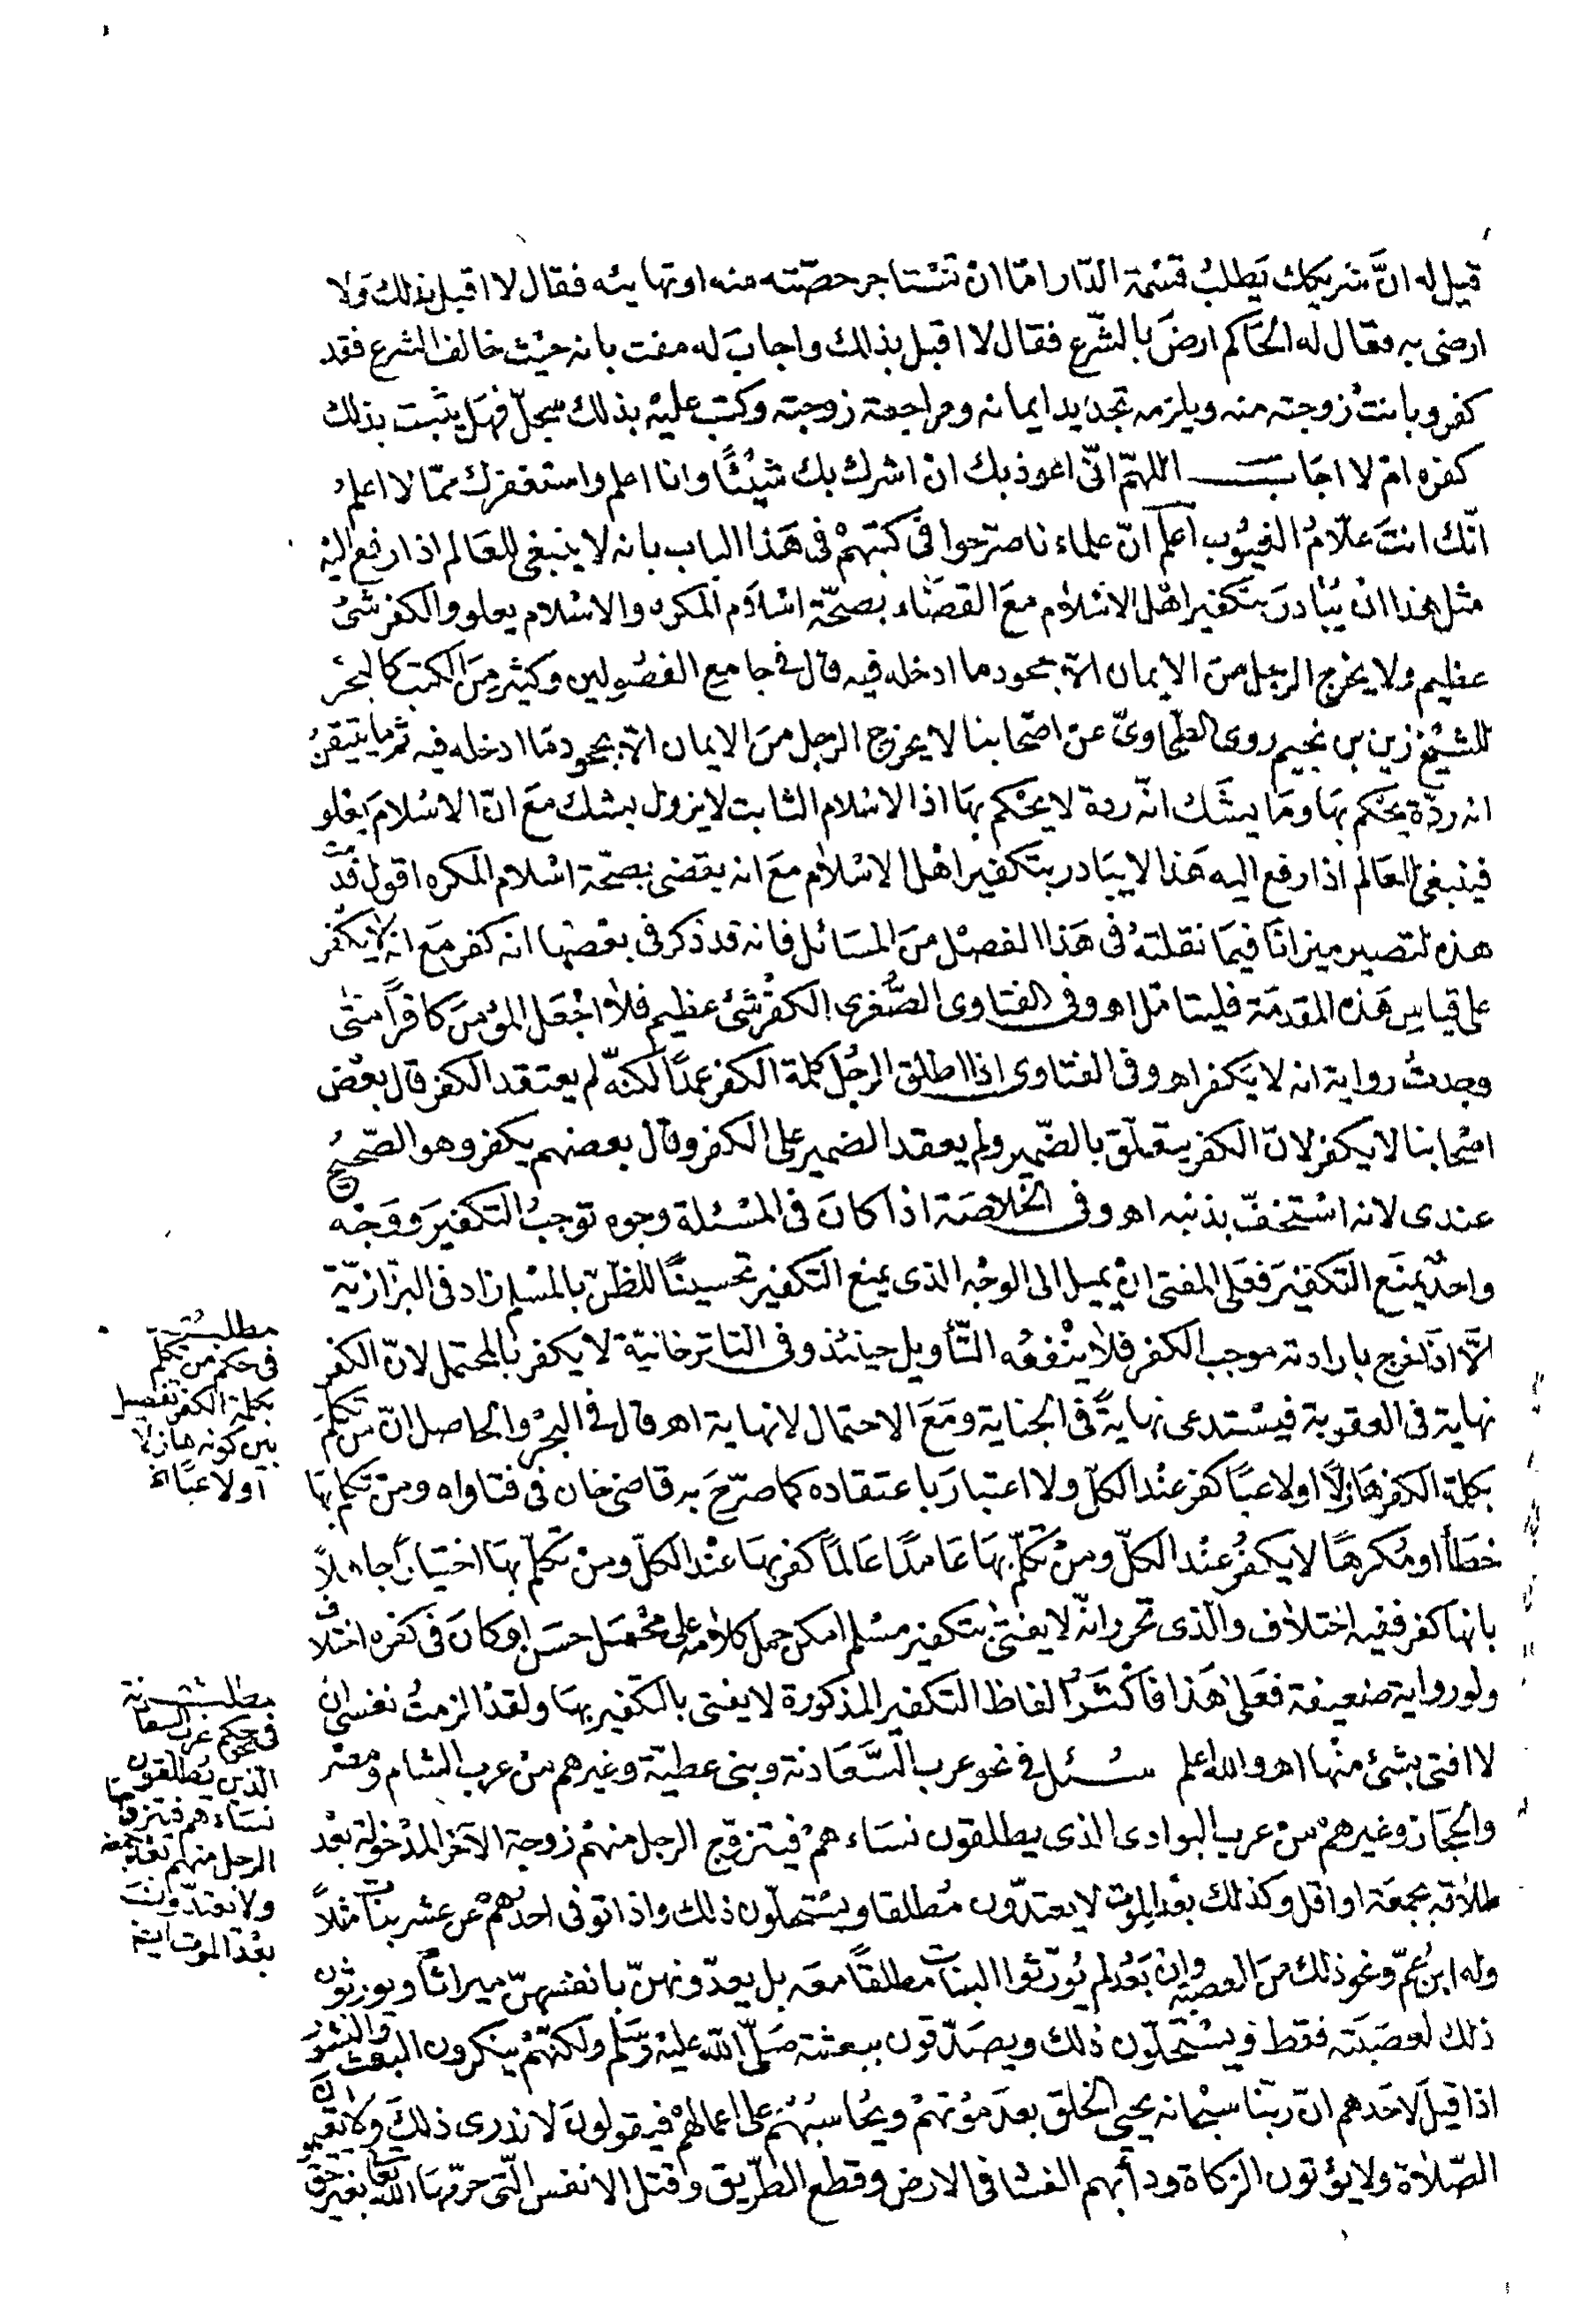 قيل له انَّ شريكك يَطلبُ قسْمة الدّار امّا انْ تَسْتاجر حصّته منه او تهايئه فقال لا اقبل بذلك ولا
ارضى به فقال له الحَاكم ارضَ بالشّرع فقال لا اقبل بذلك واجابَ له مفت بانه حيْث خالف الشرع فقد
كفر وبانتْ زوجته منه ويلزمه تجديد ايمانه ومراجعة زوجته وكتب عليْه بذلك سجلّ فهَل يثبت بذلك
كفره امْ لا اجَابَ اللهمّ انّى اعوذ بك انْ اشرك بك شيْئًا وانا اعلم واستغفرك ممّا لا اعلم
انّك انتَ علّامُ الغيُوب اعلم انّ علماءنا صرّحوا فى كتبهمْ فى هَذا الباب بانه لا ينبغى للعَالم اذا رفع اليْه
مثل هذا انْ يُبَادرَ بتكفير اهْل الاسْلام معَ القضَاء بصحّة اسْلام المكره والاسْلام يعلو والكفر شئ
عظيم ولا يخرج الرجل منَ الايمان الّا بجحود ما ادخله فيه قال فى جامع الفصُولين وكثير منَ الكتب كالبحْر
للشيْخ زين بن نجيم روى الطّحاوىّ عنْ اصْحابنا لا يخرج الرجل منَ الايمان الّا بجحود مَا ادخله فيه ثم ما يتيقنُ
انه ردّة يحْكم بهَا ومَا يشَك انّه ردة لا يحْكم بهَا اذ الاسْلام الثابت لا يزول بشك معَ انّ الاسْلامَ يعْلو
فينبغى للعَالم اذا رفع اليه هَذا لا يبَادر بتكفير اهْل الاسْلام معَ انه يقضى بصحّة اسْلام المكره اقول قدّمت
هذه لتصير ميزانًا فيمَا نقلتهُ فى هَذا الفصْل منَ المسَائل فانه قد ذكر فى بعْضها انه كفر معَ انه لا يكفر
على قياسِ هَذه المقدمَة فليتامّل اهـ وفى الفتاوى الصُّغرى الكفْرُ شئ عظيم فلا اجْعَل المؤمنَ كافراً متى
وجدتُ رواية انه لا يَكفر اهـ وفى الفتاوى اذا اطلق الرجُل كلمة الكفر عمدًا لكنّه لم يعتقد الكفر قال بعْض
اصْحابنا لا يكفر لانّ الكفر يتعلّق بالضّمير ولم يعقد الضمير على الكفر وقال بعضهم يكفر وهو الصّحيحُ
عندى لانه اسْتخفّ بذنبه اهـ وفى الخلاصَة اذا كانَ فى المسْئلة وجوه توجبُ التكفيرَ ووَجْه
واحدٌ يمنَع التكفيْرَ فعَلى المفتى انْ يميل الى الوجْه الذى يمنع التكفير تحسينًا للظنّ بالمسْلم زاد فى البزّازيّة
الّا اذا صرّح بارادته موجب الكفر فلا ينْفعُه التّأويل حينئذ وفى التاترخانيّة لا يكفر بالمحتمل لانّ الكفر
نهاية فى العقوبة فيسْتدعى نهايةً فى الجناية ومَعَ الاحتمال لا نهاية اهـ قال فى البحْر والحاصل انّ منْ تكلّم
بكلمة الكفر هَازلًا او لاعبًا كفر عنْد الكلّ ولا اعتبارَ باعتقاده كما صرّحَ به قاضى خان فى فتاواه ومنْ تكلّم بهَا
خطَأً او مُكرهًا لا يكفرُ عنْد الكلّ ومنْ تكلّم بهَا عَامدًا عَالمًا كفر بهَا عنْد الكلّ ومنْ تكلّم بهَا اختيارًا جاهلاً
بانها كفر ففيه اختلاف والّذى تحرّر انّه لا يفتى بتكفير مسْلم امكن حمل كلامه على محْمَل حسَن او كانَ فى كفره اختلاف
ولو رواية ضعيفة فعَلى هَذا فاكْثَرُ الفاظ التكفير المذكورة لا يفتى بالتكفير بهَا ولقدْ الزمتُ نفسى ان
لا افتى بشئ منْها اهـ والله اعلم سُئل فى نحو عرب السَّعَادنة وبنى عطيّة وغيرهم منْ عرب الشام ومصْر
والحجَاز وغيرهمْ منْ عرب البوادى الذى يطلقون نسَاءهمْ فيتزوّج الرجل منهمْ زوجة الآخر المدْخولة بعْد
طلاقه بجمعَة او اقل وكذلك بعْد الموت لا يعتدّون مُطلقا ويسْتحلّون ذلك واذا توفى احدُهمْ عن عشر بنات مثلاً
وله ابن عمّ ونحو ذلك منَ العصبَة وانْ بَعُد لم يُورّثوا البنات مطلقًا معَه بل يعدّونهنّ بانفسهنّ ميراثاً ويورثون
ذلك لعصَبَته فقط ويسْتحلّون ذلك ويصَدّقون ببعثته صَلّى الله عليْه وسَلم ولكنّهمْ ينكرون البعث والنشور
اذا قيلَ لاحَدهم انّ ربّنا سبْحانه يحيى الخلق بعدَ موْتهمْ ويحَاسبُهمْ على اعمالهمْ فيقولونَ لا ندرى ذلكَ ولا يقيمون
الصّلاة ولا يؤتون الزكاة ودأبهم الفسَاد فى الارض وقطع الطّريق وقتل الانفس الّتى حرّمهَا الله تعالى بغير حقّ
مطلب
فى حكم من تكلم
بكلمة الكفر تفصيل
بين كونه هازلا
او لاعبًا الخ
مطلب
فى حكم عرب السعادنة
الذين يُطلقون
نسَاءهم فيتزوّج
الرجل منهم بعْد جمعة
ولا تعتدّون
بعْد الموت ايضا